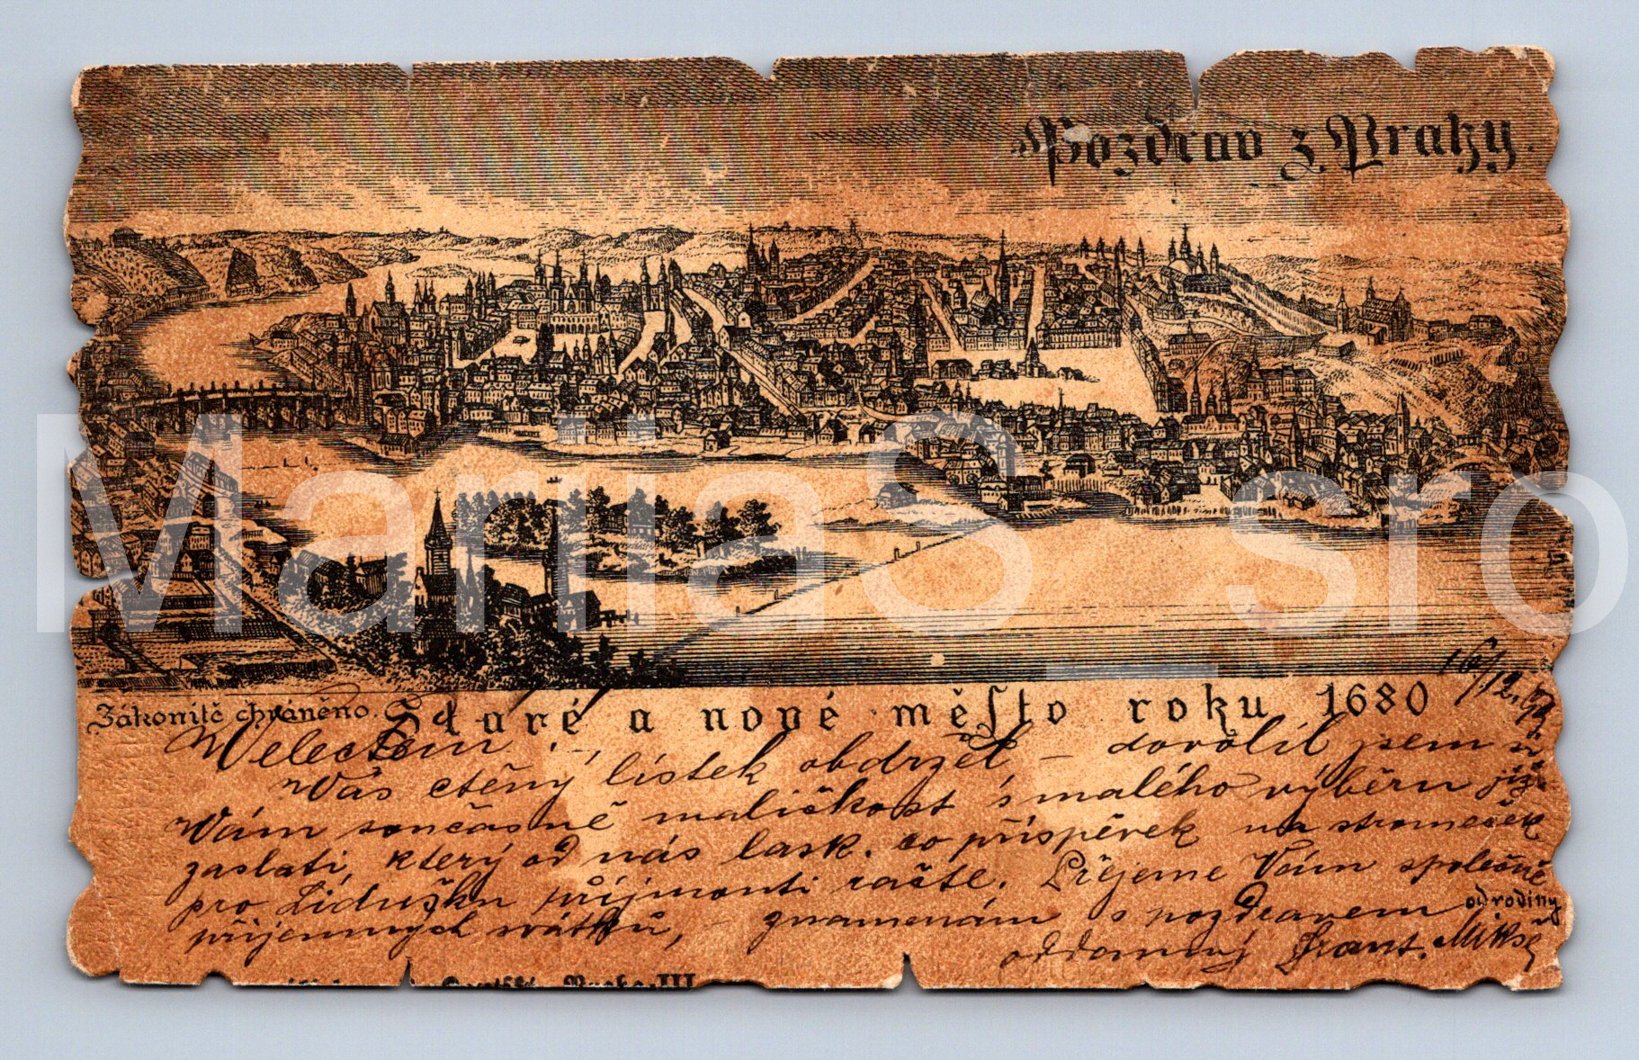 Pozdrav z Prahy.
Zákonitě chráněno.
Staré a nové město roku 1680
16/12.
Velectění
Vás ctěný lístek obdržel – dovolil jsem si
Vám současně maličkost s malého výběru již
zaslati, který od nás lask. co příspěvek na stromeček
pro Lidušku přijmouti račte. Přejeme Vám společně
příjemných svátků, – znamenám s pozdravem od rodiny
oddanný Frant. Mikse
Praha III
MarijaS_sro